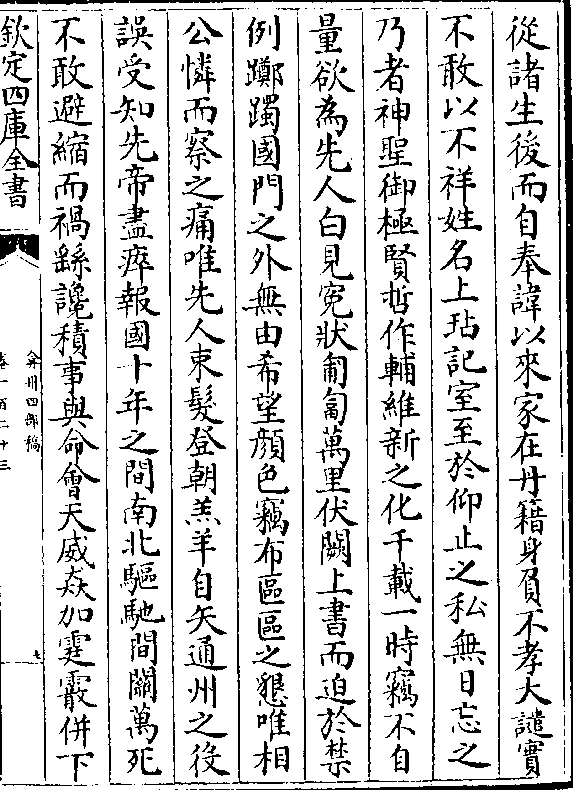 從諸生後而自奉諱以來家在丹籍身負不孝大譴實
不敢以不祥姓名上玷記室至於仰止之私無日忘之
乃者神聖御極賢哲作輔維新之化千載一時竊不自
量欲為先人白見寃狀匍匐萬里伏闕上書而迫於禁
例躑躅國門之外無由希望顔色竊布區區之懇唯相
公憐而察之痛唯先人束髮登朝羔羊自矢通州之役
誤受知先帝盡瘁報國十年之間南北驅馳間關萬死
不敢避縮而禍繇讒積事與命會天威焱加霆霰併下
欽定四庫全書
弇州四部稿
卷一百二十三
七